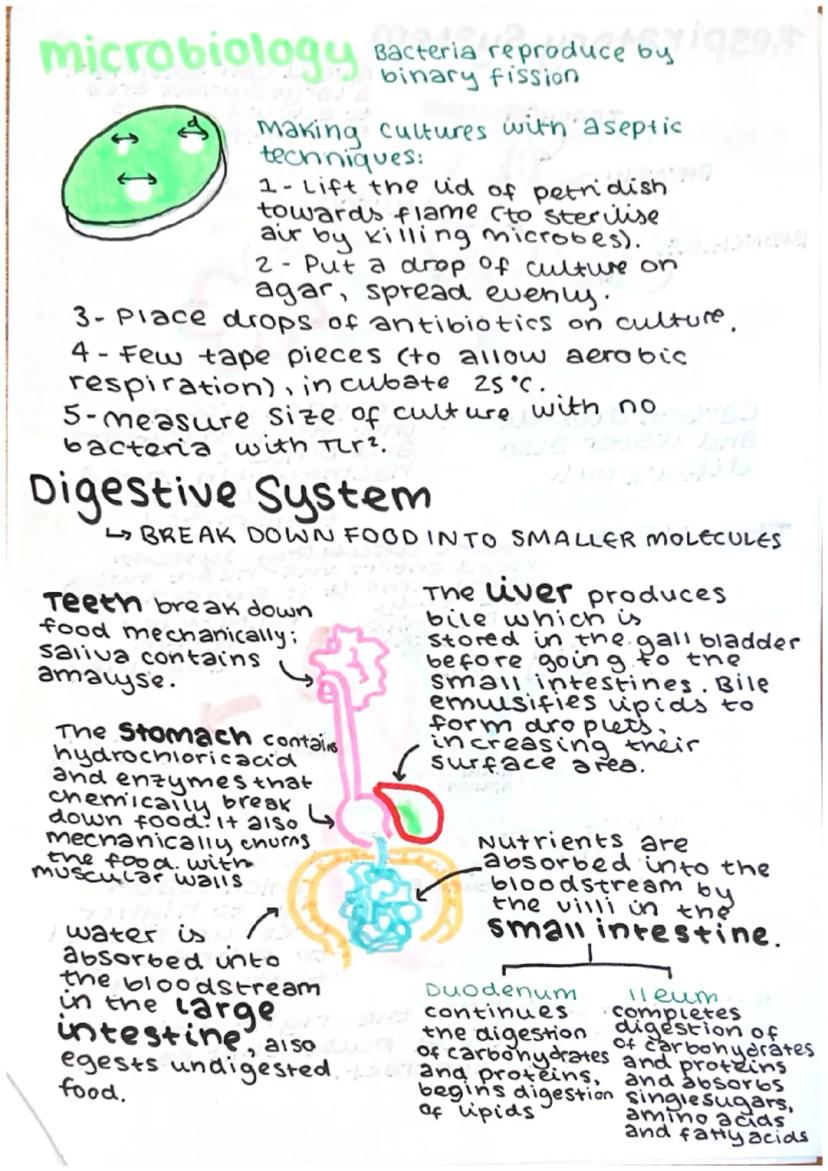 microbiology
Bacteria reproduce by
binary fission
Making cultures with aseptic
techniques:
1- Lift the lid of petri dish
towards flame (to sterilise
air by killing microbes).
2 - Put a drop of culture on
agar, spread evenly.
3- Place drops of antibiotics on culture.
4 - Few tape pieces (to allow aerobic
respiration), incubate 25°C.
5-measure size of culture with no
bacteria with πr².
Digestive System
↳ BREAK DOWN FOOD INTO SMALLER MOLECULES
Teeth break down
food mechanically;
saliva contains
amalyse.
The liver produces
bile which is
stored in the gall bladder
before going to the
small intestines. Bile
emulsifies lipids to
form droplets,
increasing their
surface area.
The stomach contains
hydrochloric acid
and enzymes that
chemically break
down food. It also
mechanically churns
the food with
muscular walls
Nutrients are
absorbed into the
bloodstream by
the villi in the
small intestine.
water is
absorbed into
the bloodstream
in the large
intestine, also
egests undigested
food.
Duodenum
continues
the digestion
of carbohydrates
and proteins,
begins digestion
of lipids
Ileum
completes
digestion of
of carbohydrates
and proteins
and absorbs
single sugars,
amino acids
and fatty acids